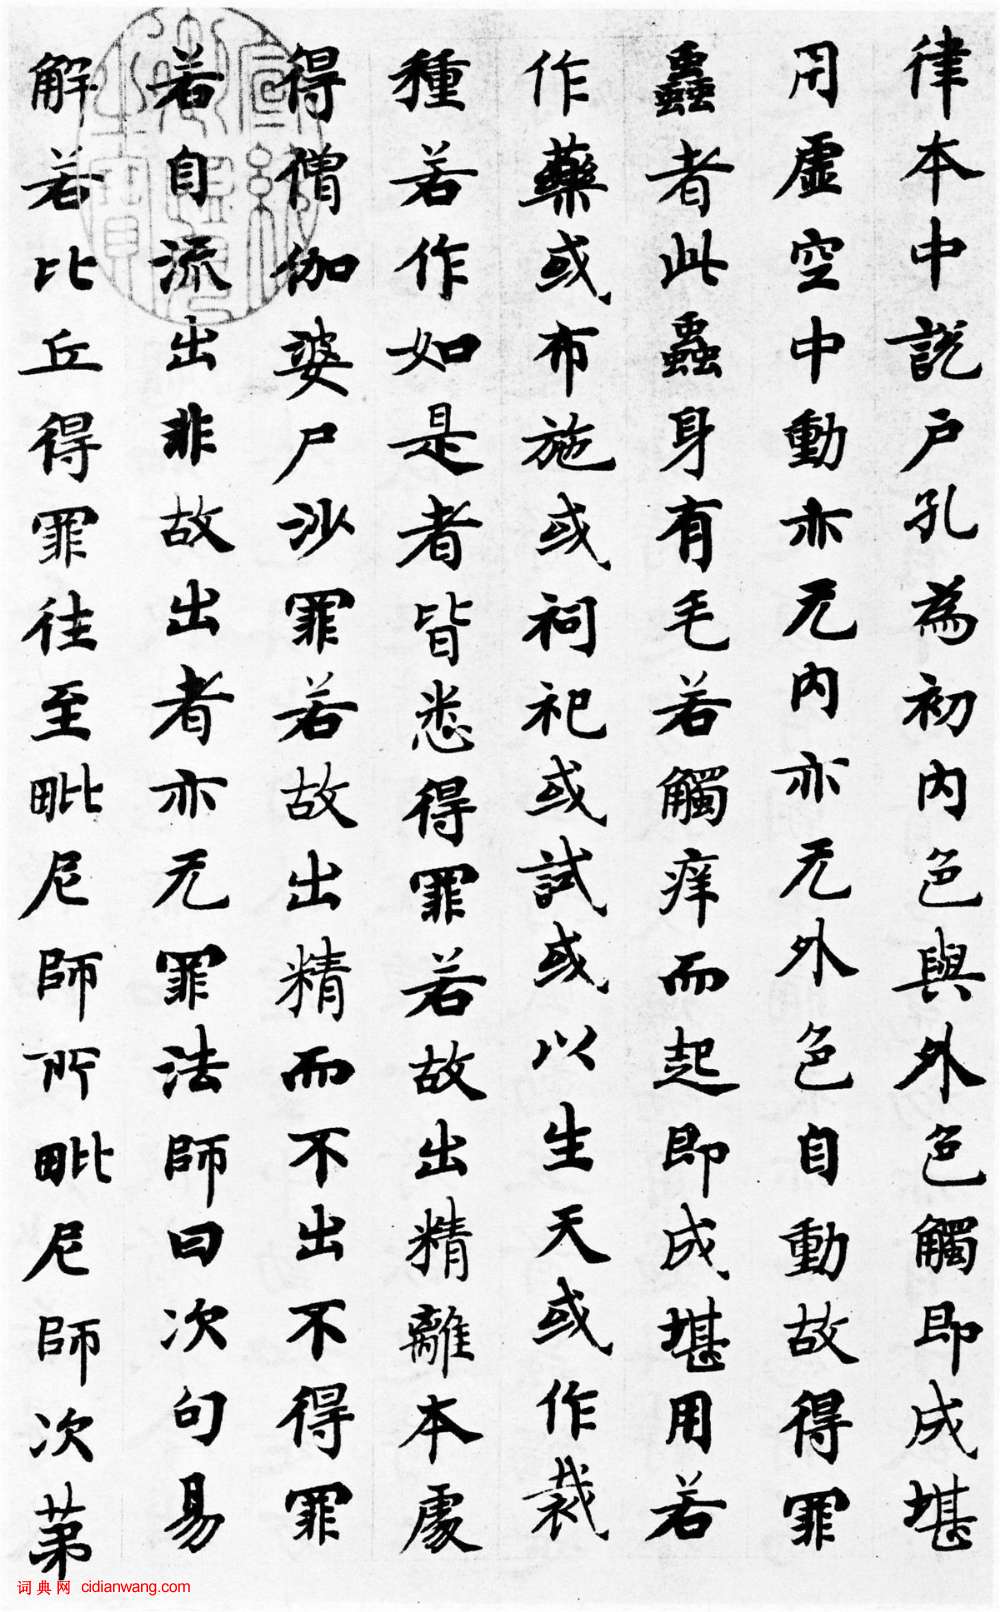 律本中説戶孔為初內色與外色觸即成堪
用虛空中動亦无內亦无外色自動故得罪
蟲者此蟲身有毛若觸痒而起即成堪用若
作藥或布施或祠祀或試或以生天或作裁
種若作如是者皆悉得罪若故出精離本處
得僧伽婆尸沙罪若故出精而不出不得罪
若自流出非故出者亦无罪法師曰次句易
解若比丘得罪往至毗尼師所毗尼師次第
詞典网 cidianwang.com